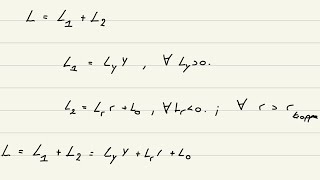 L = L₁ + L₂
L₁ = L_y Y , ∀ L_y>0.
L₂ = L_r r + L₀ , ∀ L_r<0. ; ∀ r > r_борра
L = L₁ + L₂ = L_y Y + L_r r + L₀